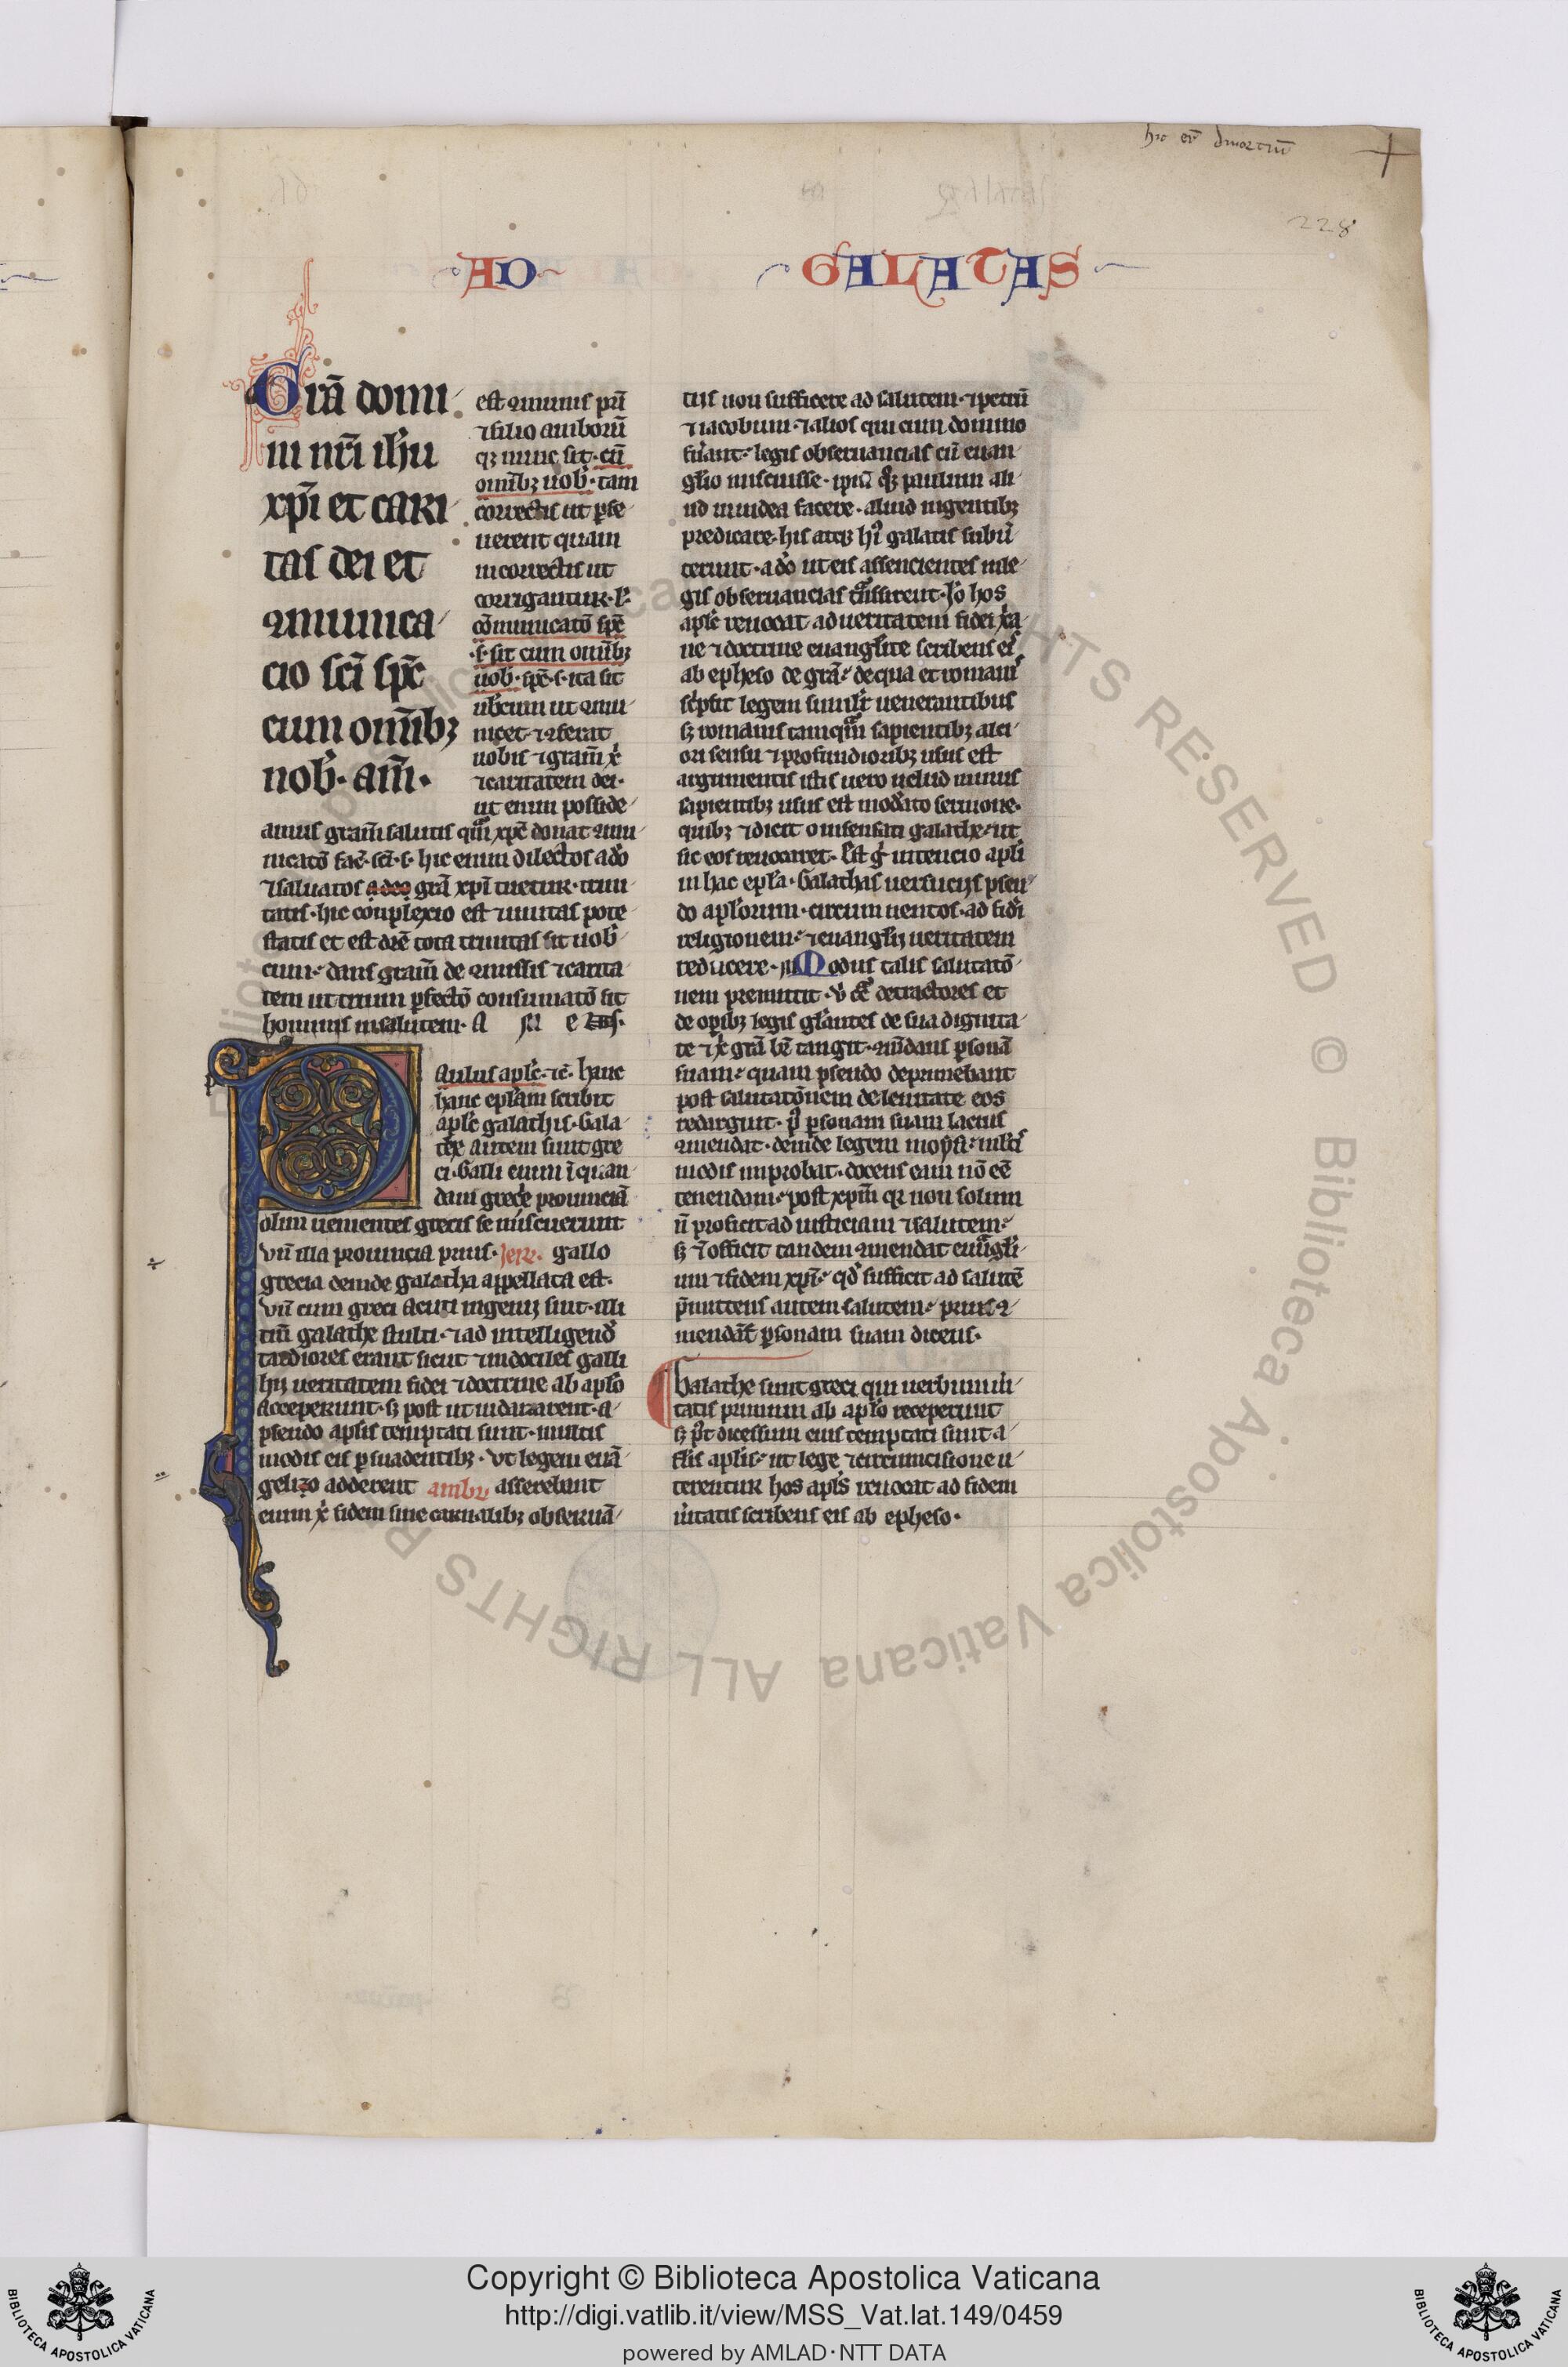 hic est diuorcium
228
AD GALATAS
Grã domi
ni nr̃i ihu
xp̃i et cari
tas dei et
ꝯmunica
cio sc̃i sp̃c
cum om̃ibꝫ
nob̾. am̃.
est ꝯmunis pr̃i
⁊ filio amborũ
qꝫ nunc sit. cũ
om̃ibꝫ uob̾. tam
correctis ut ꝑse
uerent quam
incorrectis ut
corrigantur.
cõmunicatõ sp̃c
.s. sit cum om̃ibꝫ
uob̾. sp̃c. s. ita sit
uobcum ut ꝯmu
nicet. ⁊ ꝯferat
uobis ⁊ gram̃ x̾
⁊ caritatem dei.
ut enim posside
amus gram̃ salutis qm̃ xp̃c donat ꝯmu
nicatõ fac̃. sc̃i. s. hic enim dilectos a dõ
⁊ saluatos a deo grã xp̃i tuetur. trini
tatis. hic conplexio est ⁊ unitas pote
statis et est dc̃e tota trinitas sit uob̾
cum. dans gram̃ de ꝯmissis ⁊ carita
tem ut trium ꝑfectõ consumatõ sit
hominis in salutem. A M E
aulus apl̾c. ⁊c̃. hanc
hanc epl̾am scribit
apl̾c galathis. Gala
the autem sunt gre
ci. Galli enim ĩ quan
dam grecie prouinciã
olim uenientes grecis se miscuerunt
vñ illa prouincia prius. Jer. gallo
grecia deinde galatha appellata est.
vñ cum greci acuti ingenij sint. illi
tm̃ galathe stulti. ⁊ ad intelligend̾
tardiores erant sicut ⁊ indociles galli
hij ueritatem fidei ⁊ doctrine ab apl̾o
acceperunt. sꝫ post ut iudaizarent. a
pseudo apl̾is temptati sunt. multis
modis eis ꝑsuadentibꝫ. vt legem euã
gelizo adderent ambr̃ asserebant
enim x̾ fidem sine carnalibꝫ obseruã
tiis non sufficere ad salutem. ⁊ petrũ
⁊ iacobum. ⁊ alios qui cum domino
fũant. legis obseruancias cũ euan
gl̾io miscuisse. ip̃m qꝫ paulum ali
ud in iudea facere. aliud in gentibꝫ
predicare. his atqꝫ hi galatis subu̾
terunt. adõ ut eis assencientes in le
gis obseruancias transirent. Jõ hos
apl̾c reuocat ad ueritatem fidei x̾a
ne ⁊ doctrine euangl̾ice scribens ei
ab epheso de grã. de qua et romanis
sc̾psit legem simil̾r uenerantibus
sꝫ romanis tamqm̃ sapientibꝫ alci
ori sensu ⁊ profundioribꝫ usus est
argumentis istis uero uelud minus
sapientibꝫ usus est mod̾ato sermone.
quibꝫ ⁊ dicit o insensati galathe. ut
sic eos reuocaret. Est g̾ intencio apl̾i
in hac epl̾a. Galathas uersucijs pseu
do apl̾orum. circum uentos. ad fid̾i
religionem. ⁊ euangl̾ij ueritatem
reducere. Modus talis salutatõ
nem premittit. ũ detractores et
de opibꝫ legis gl̾antes de sua dignita
te ⁊ x̾ grã bñ tangit. ꝯmẽdans ꝑsonã
suam. quam pseudo deprimebant
post salutatõnem de leuitate eos
redarguit. pꝰ ꝑsonam suam lacius
ꝯmendat. deinde legem moysi. ml̾tis
modis improbat. docens eam nõ eẽ
tenendam. post xp̃m qꝛ non solum
ñ proficit ad iusticiam ⁊ salutem.
sꝫ ⁊ officit tandem ꝯmendat euãgl̾i
um ⁊ fidem xp̃i. qd̾ sufficit ad salutẽ
p̃mittens autem salutem. prius ꝯ
mendãs ꝑsonam suam dicens.
Galathe sunt greci qui uerbum ũi
tatis primum ab apl̾o receperunt
sꝫ pꝰt dicessum eius temptati sunt a
fl̾is apl̾is. ut lege ⁊ circumcisione u
terentur hos apl̾s reuocat ad fidem
ũitatis scribens eis ab epheso.
Copyright © Biblioteca Apostolica Vaticana
http://digi.vatlib.it/view/MSS_Vat.lat.149/0459
powered by AMLAD·NTT DATA
BIBLIOTECA APOSTOLICA VATICANA
BIBLIOTECA APOSTOLICA VATICANA
© Biblioteca Apostolica Vaticana ALL RIGHTS RESERVED